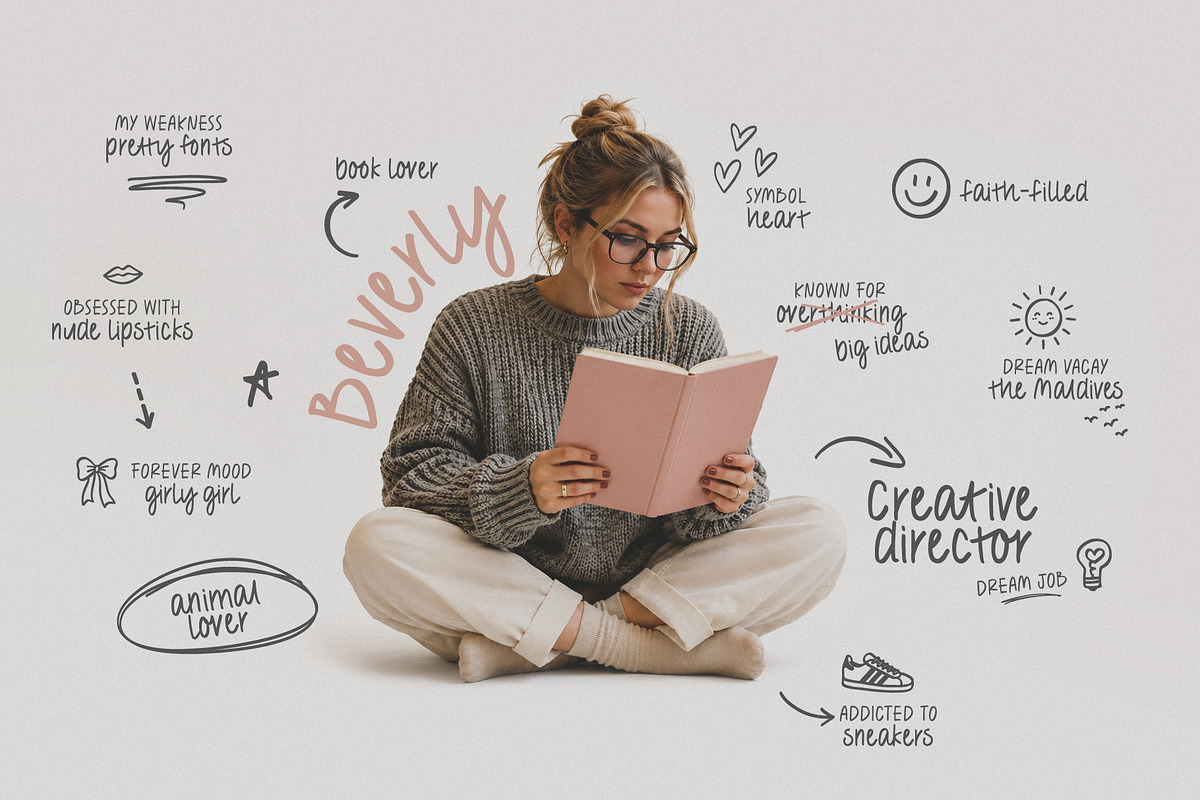 MY WEAKNESS
pretty fonts
book lover
Beverly
SYMBOL
heart
faith-filled
OBSESSED WITH
nude lipsticks
KNOWN FOR
overthinking
big ideas
DREAM VACAY
the Maldives
FOREVER MOOD
girly girl
Creative
director
DREAM JOB
animal
lover
ADDICTED TO
sneakers